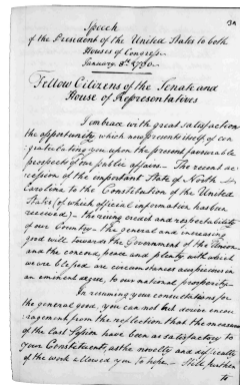 Speech
of the President of the United States to both
Houses of Congress
January 8th 1790.
Fellow Citizens of the Senate and
House of Representatives
I embrace with great satisfaction
the opportunity which now presents itself of con
gratulating you upon the present favourable
prospects of our public affairs. The recent ac
cession of the important State of North
Carolina to the Constitution of the United
States (of which official information has been
received) — the rising credit and respectability
of our Country — the general and increasing
good will towards the Government of the Union
and the concord, peace and plenty with which
we are blessed are circumstances auspicious in
an eminent degree, to our national prosperity —
In resuming your consultations for
the general good, you can not but derive encou
ragement from the reflection that the measures
of the last Session have been as satisfactory to
your Constituents, as the novelty and difficulty
of the work allowed you to hope — Still further
to